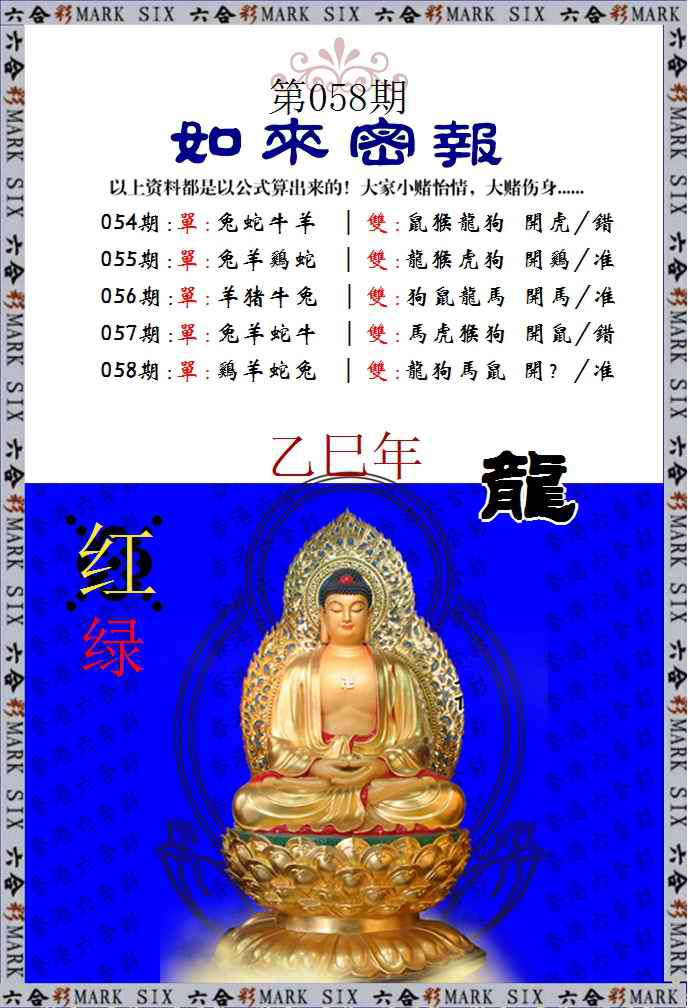 六合彩MARK SIX 六合彩MARK SIX 六合彩MARK SIX 六合彩MARK SIX 六合彩MARK SIX
第058期
如來密報
以上资料都是以公式算出来的！大家小赌怡情，大赌伤身......
054期:單:兔蛇牛羊 | 雙:鼠猴龍狗 開虎/錯
055期:單:兔羊鷄蛇 | 雙:龍猴虎狗 開鷄/准
056期:單:羊猪牛兔 | 雙:狗鼠龍馬 開馬/准
057期:單:兔羊蛇牛 | 雙:馬虎猴狗 開鼠/錯
058期:單:鷄羊蛇兔 | 雙:龍狗馬鼠 開? /准
乙巳年
龍
红
绿
六合彩MARK SIX 六合彩MARK SIX 六合彩MARK SIX 六合彩MARK SIX 六合彩MARK